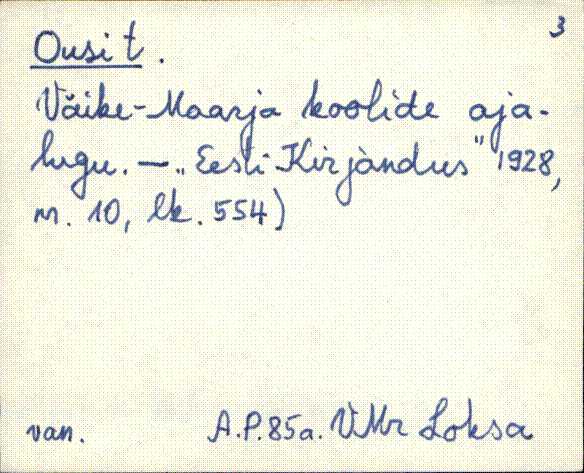 3
Ousi t.
Väike-Maarja koolide aja-
lugu. — „Eesti Kirjandus" 1928,
nr. 10, lk. 554)
van. A.P.85a. VMr Loksa